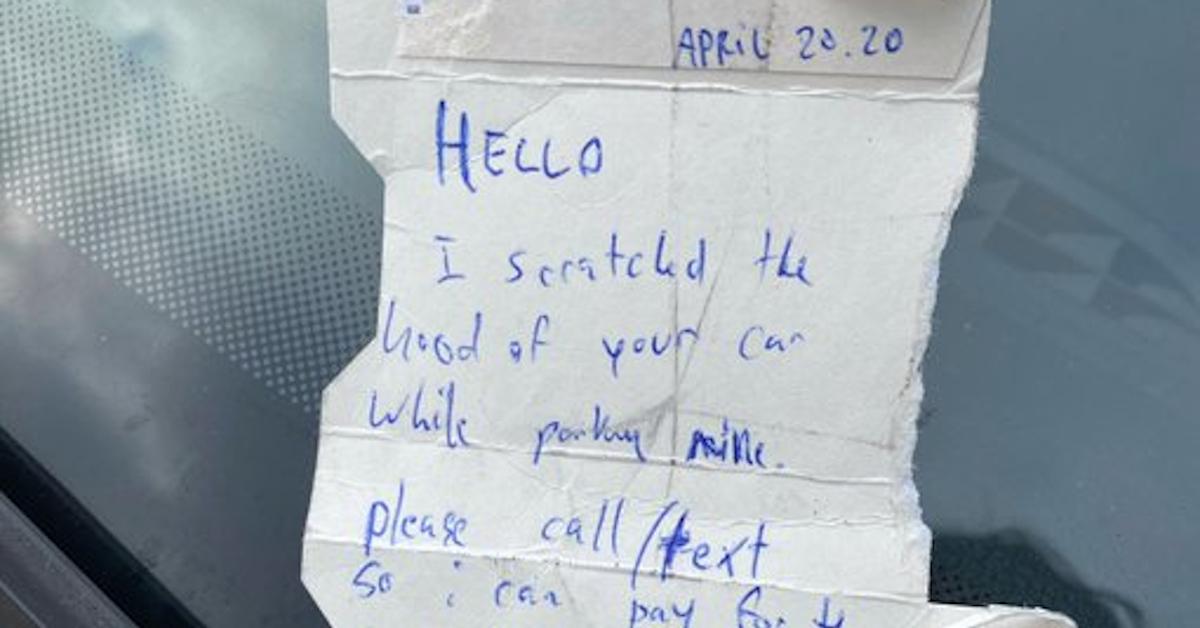 APRIL 20.20
HELLO
I scratched the
hood of your car
while parking mine.
please call/text
so i can pay for